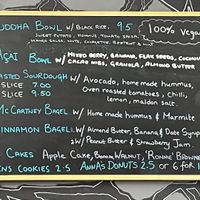 BUDDHA BOWL w/ BLACK RICE, 9.5
SWEET POTATO, HUMMUS, TOMATO SALSA,
100% Vegan
AÇAI BOWL w/ MIXED BERRY, BANANA, FLAX SEEDS, COCONUT
CACAO NIBS, GRANOLA, ALMOND BUTTER
TOASTED SOURDOUGH w/ Avocado, home made hummus,
SLICE 7.00 Oven roasted tomatoes, chilli,
SLICE 9.50 lemon, maldon salt.
McCARTNEY BAGEL w/ Home made hummus & Marmite
CINNAMON BAGEL w/ Almond Butter, Banana & Date Syrup
2 w/ Peanut Butter & Strawberry Jam.
CAKES Apple Cake, Banana Walnut, 'Ronnie' Brownie
COOKIES 2.5 ANNA'S DONUTS 2.5 or 6 for